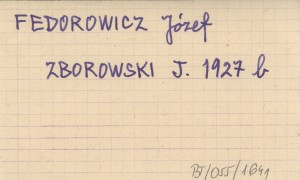 FEDOROWICZ Józef
ZBOROWSKI J. 1927 b
PJ/055/1641